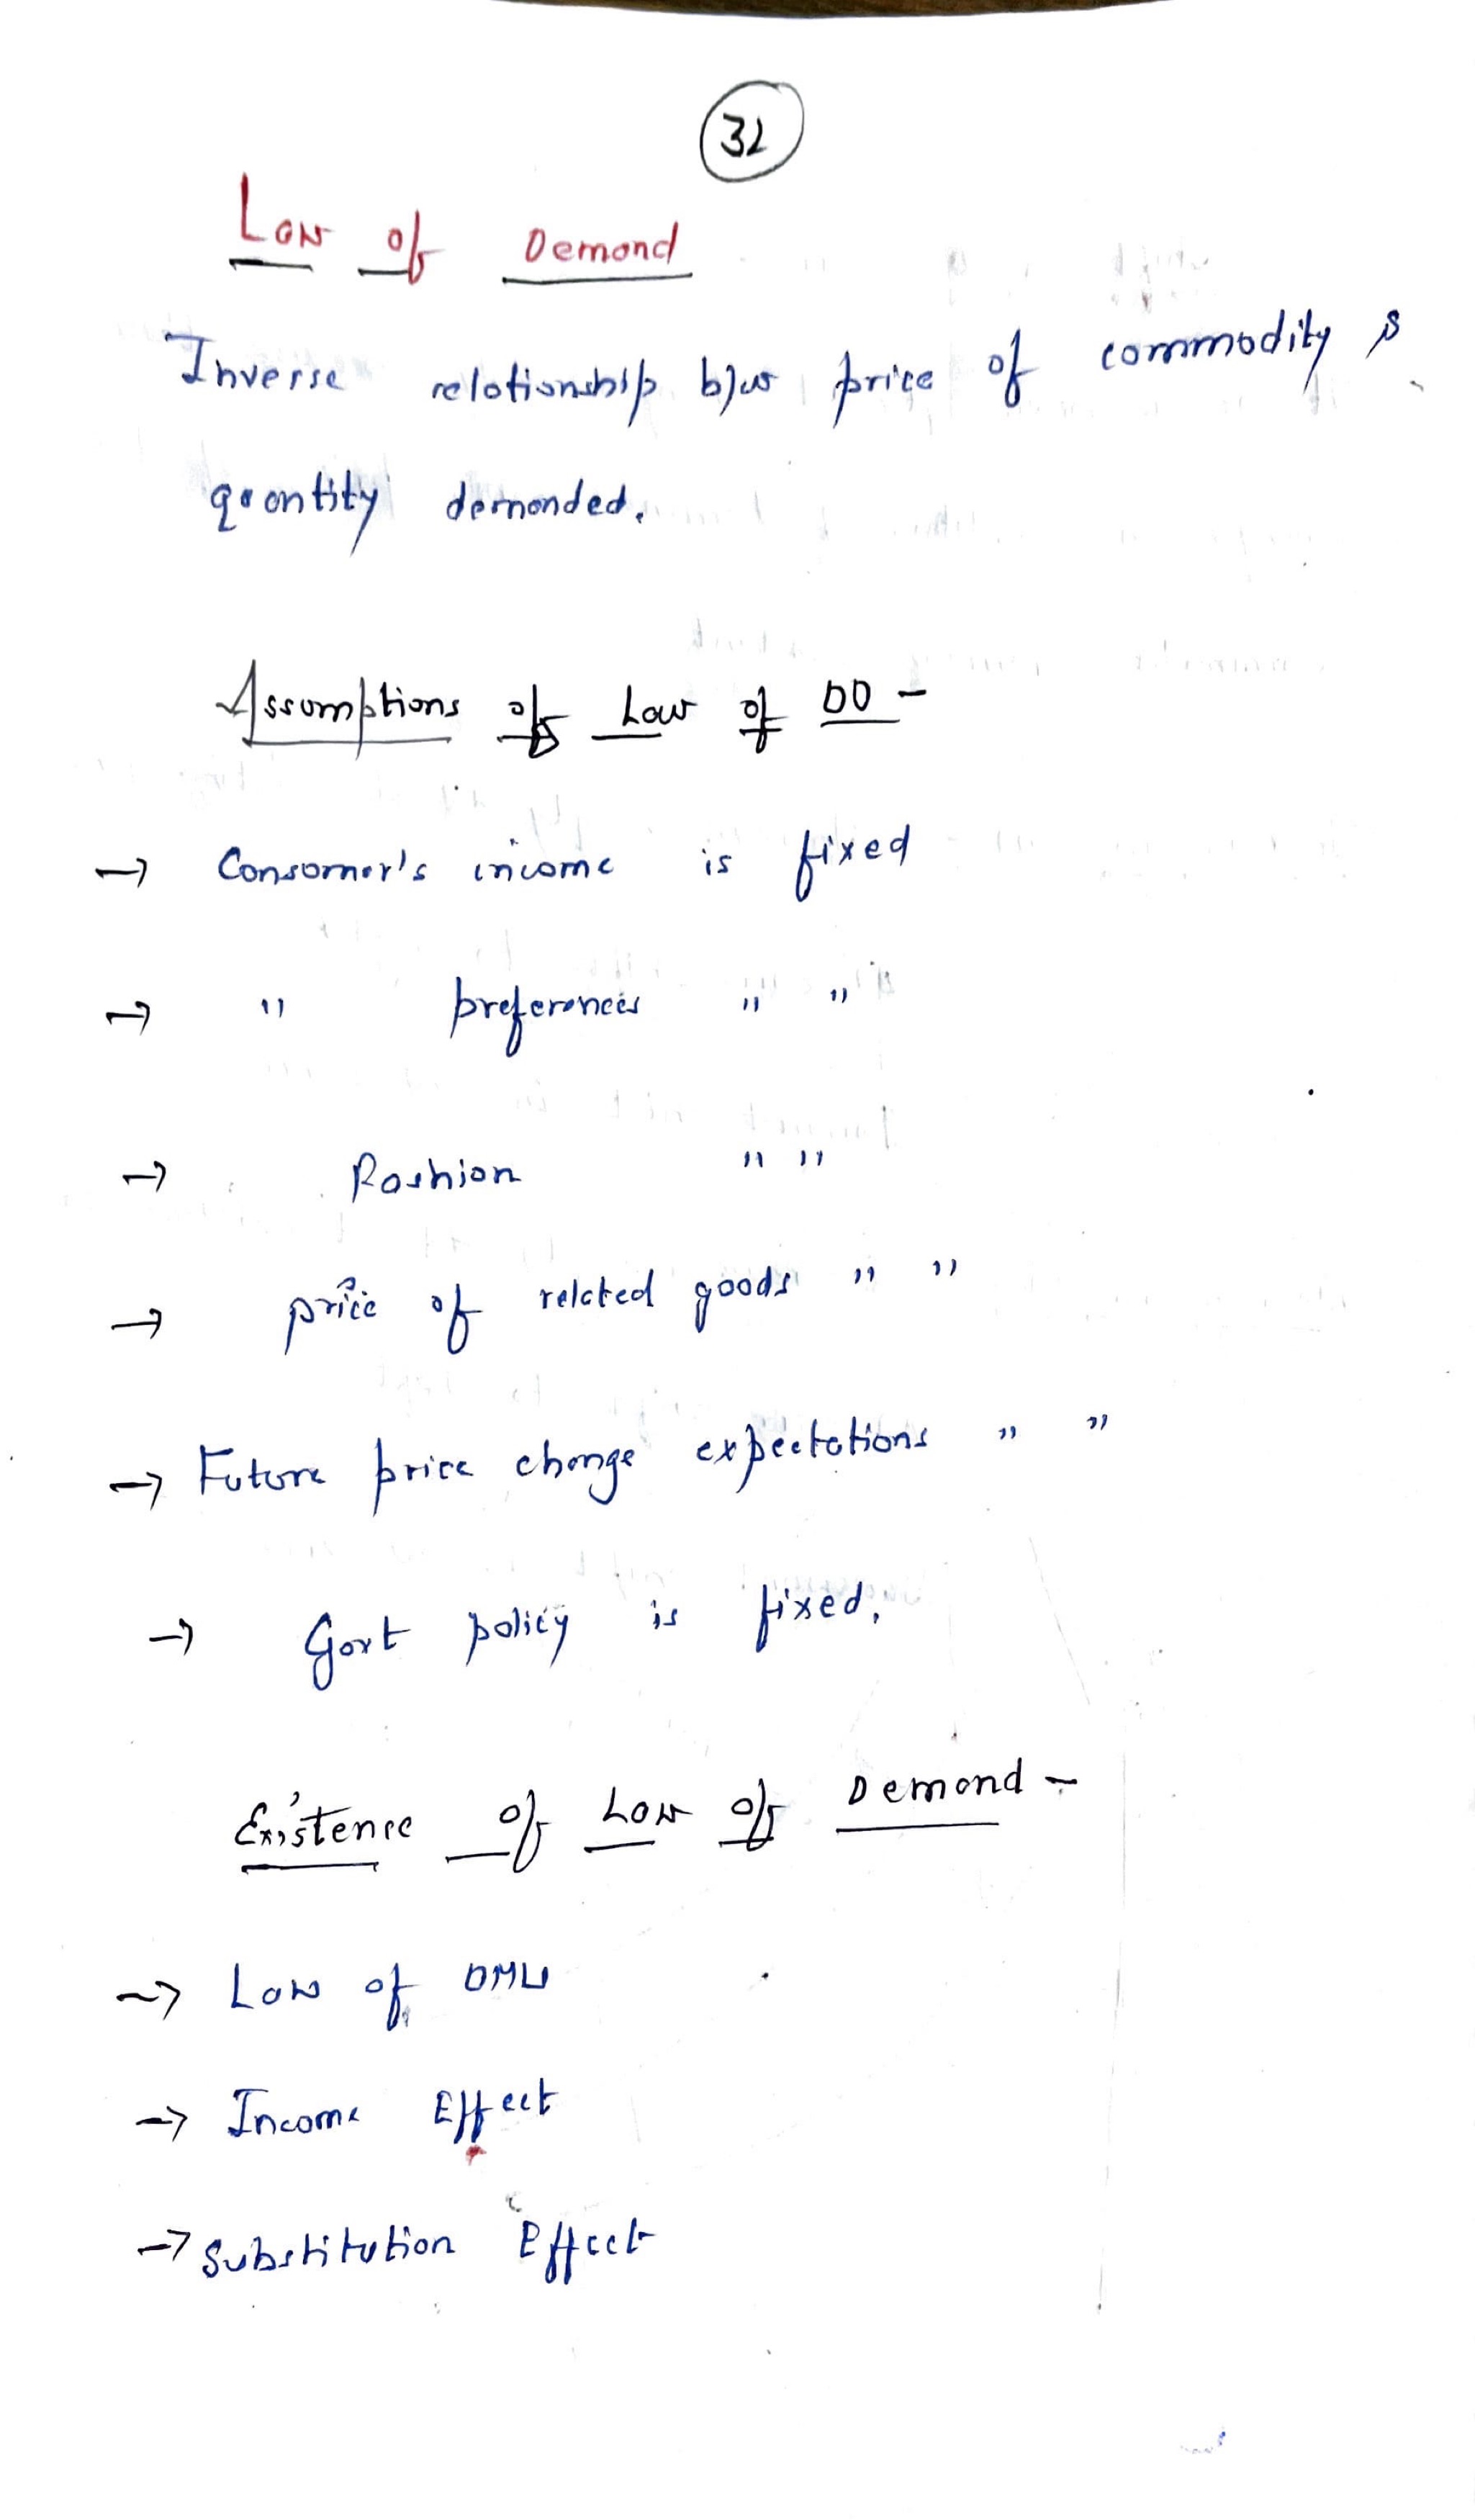 32
Law of Demand
Inverse relationship b/w price of commodity &
quantity demanded.
Assumptions of Law of DD -
→ Consumer's income is fixed
→ " preferences " "
→ Fashion " "
→ price of related goods " "
→ Future price change expectations " "
→ Govt policy is fixed.
Existence of Law of Demand -
→ Law of DMU
→ Income Effect
→ Substitution Effect